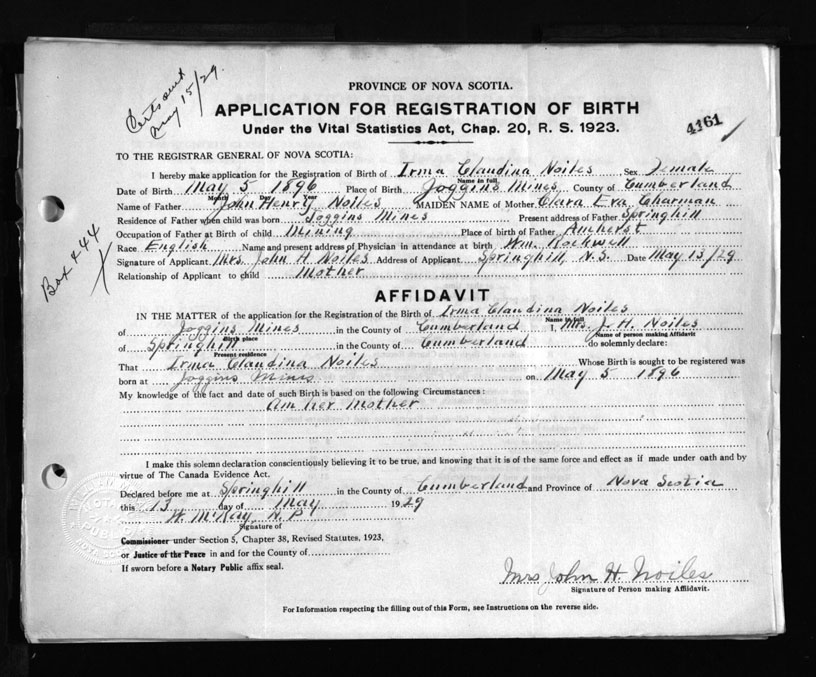 Certs sent
May 15/29.
PROVINCE OF NOVA SCOTIA.
APPLICATION FOR REGISTRATION OF BIRTH
Under the Vital Statistics Act, Chap. 20, R. S. 1923.
4161
TO THE REGISTRAR GENERAL OF NOVA SCOTIA:
I hereby make application for the Registration of Birth of Irma Claudina Noiles Sex Female
Name in full
Date of Birth May 5 1896 Place of Birth Joggins Mines County of Cumberland
Month Day Year
Name of Father John Henry Noiles MAIDEN NAME of Mother Clara Eva Charman
Residence of Father when child was born Joggins Mines Present address of Father Springhill
Occupation of Father at Birth of child Mining Place of birth of Father Amherst
Race English Name and present address of Physician in attendance at birth Wm. Rockwell
Signature of Applicant Mrs. John H Noiles Address of Applicant Springhill, N.S. Date May 13/29
Relationship of Applicant to child Mother
Box 444
AFFIDAVIT
IN THE MATTER of the application for the Registration of the Birth of Irma Claudina Noiles
Name in full
of Joggins Mines in the County of Cumberland I, Mrs. J. H. Noiles
Birth place Name of person making Affidavit
of Springhill in the County of Cumberland do solemnly declare:
Present residence
That Irma Claudina Noiles Whose Birth is sought to be registered was
born at Joggins Mines on May 5 1896
My knowledge of the fact and date of such Birth is based on the following Circumstances:
Am her Mother
I make this solemn declaration conscientiously believing it to be true, and knowing that it is of the same force and effect as if made under oath and by
virtue of The Canada Evidence Act.
Declared before me at Springhill in the County of Cumberland and Province of Nova Scotia
this 13 day of May 1929
W. McKay N.P
Signature of
Commissioner under Section 5, Chapter 38, Revised Statutes, 1923,
or Justice of the Peace in and for the County of
If sworn before a Notary Public affix seal.
Mrs John H. Noiles
Signature of Person making Affidavit.
For Information respecting the filling out of this Form, see Instructions on the reverse side.